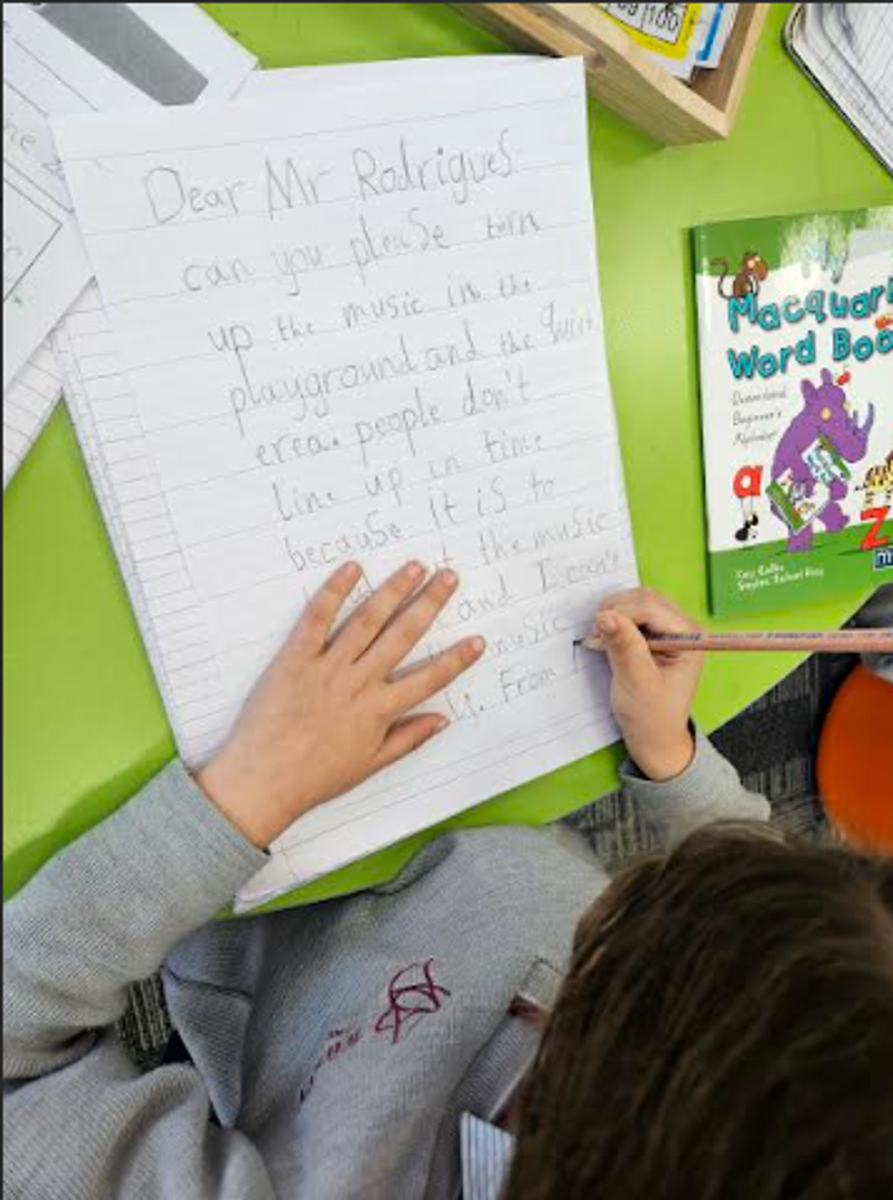 Dear Mr Rodrigues
can you please turn
up the music in the
playground and the quiet
erea. people don't
line up in time
because it is to
the music
and I can't
music
u. From
Macquari
Word Boo
Beginner's
Alphabet
a
z
100